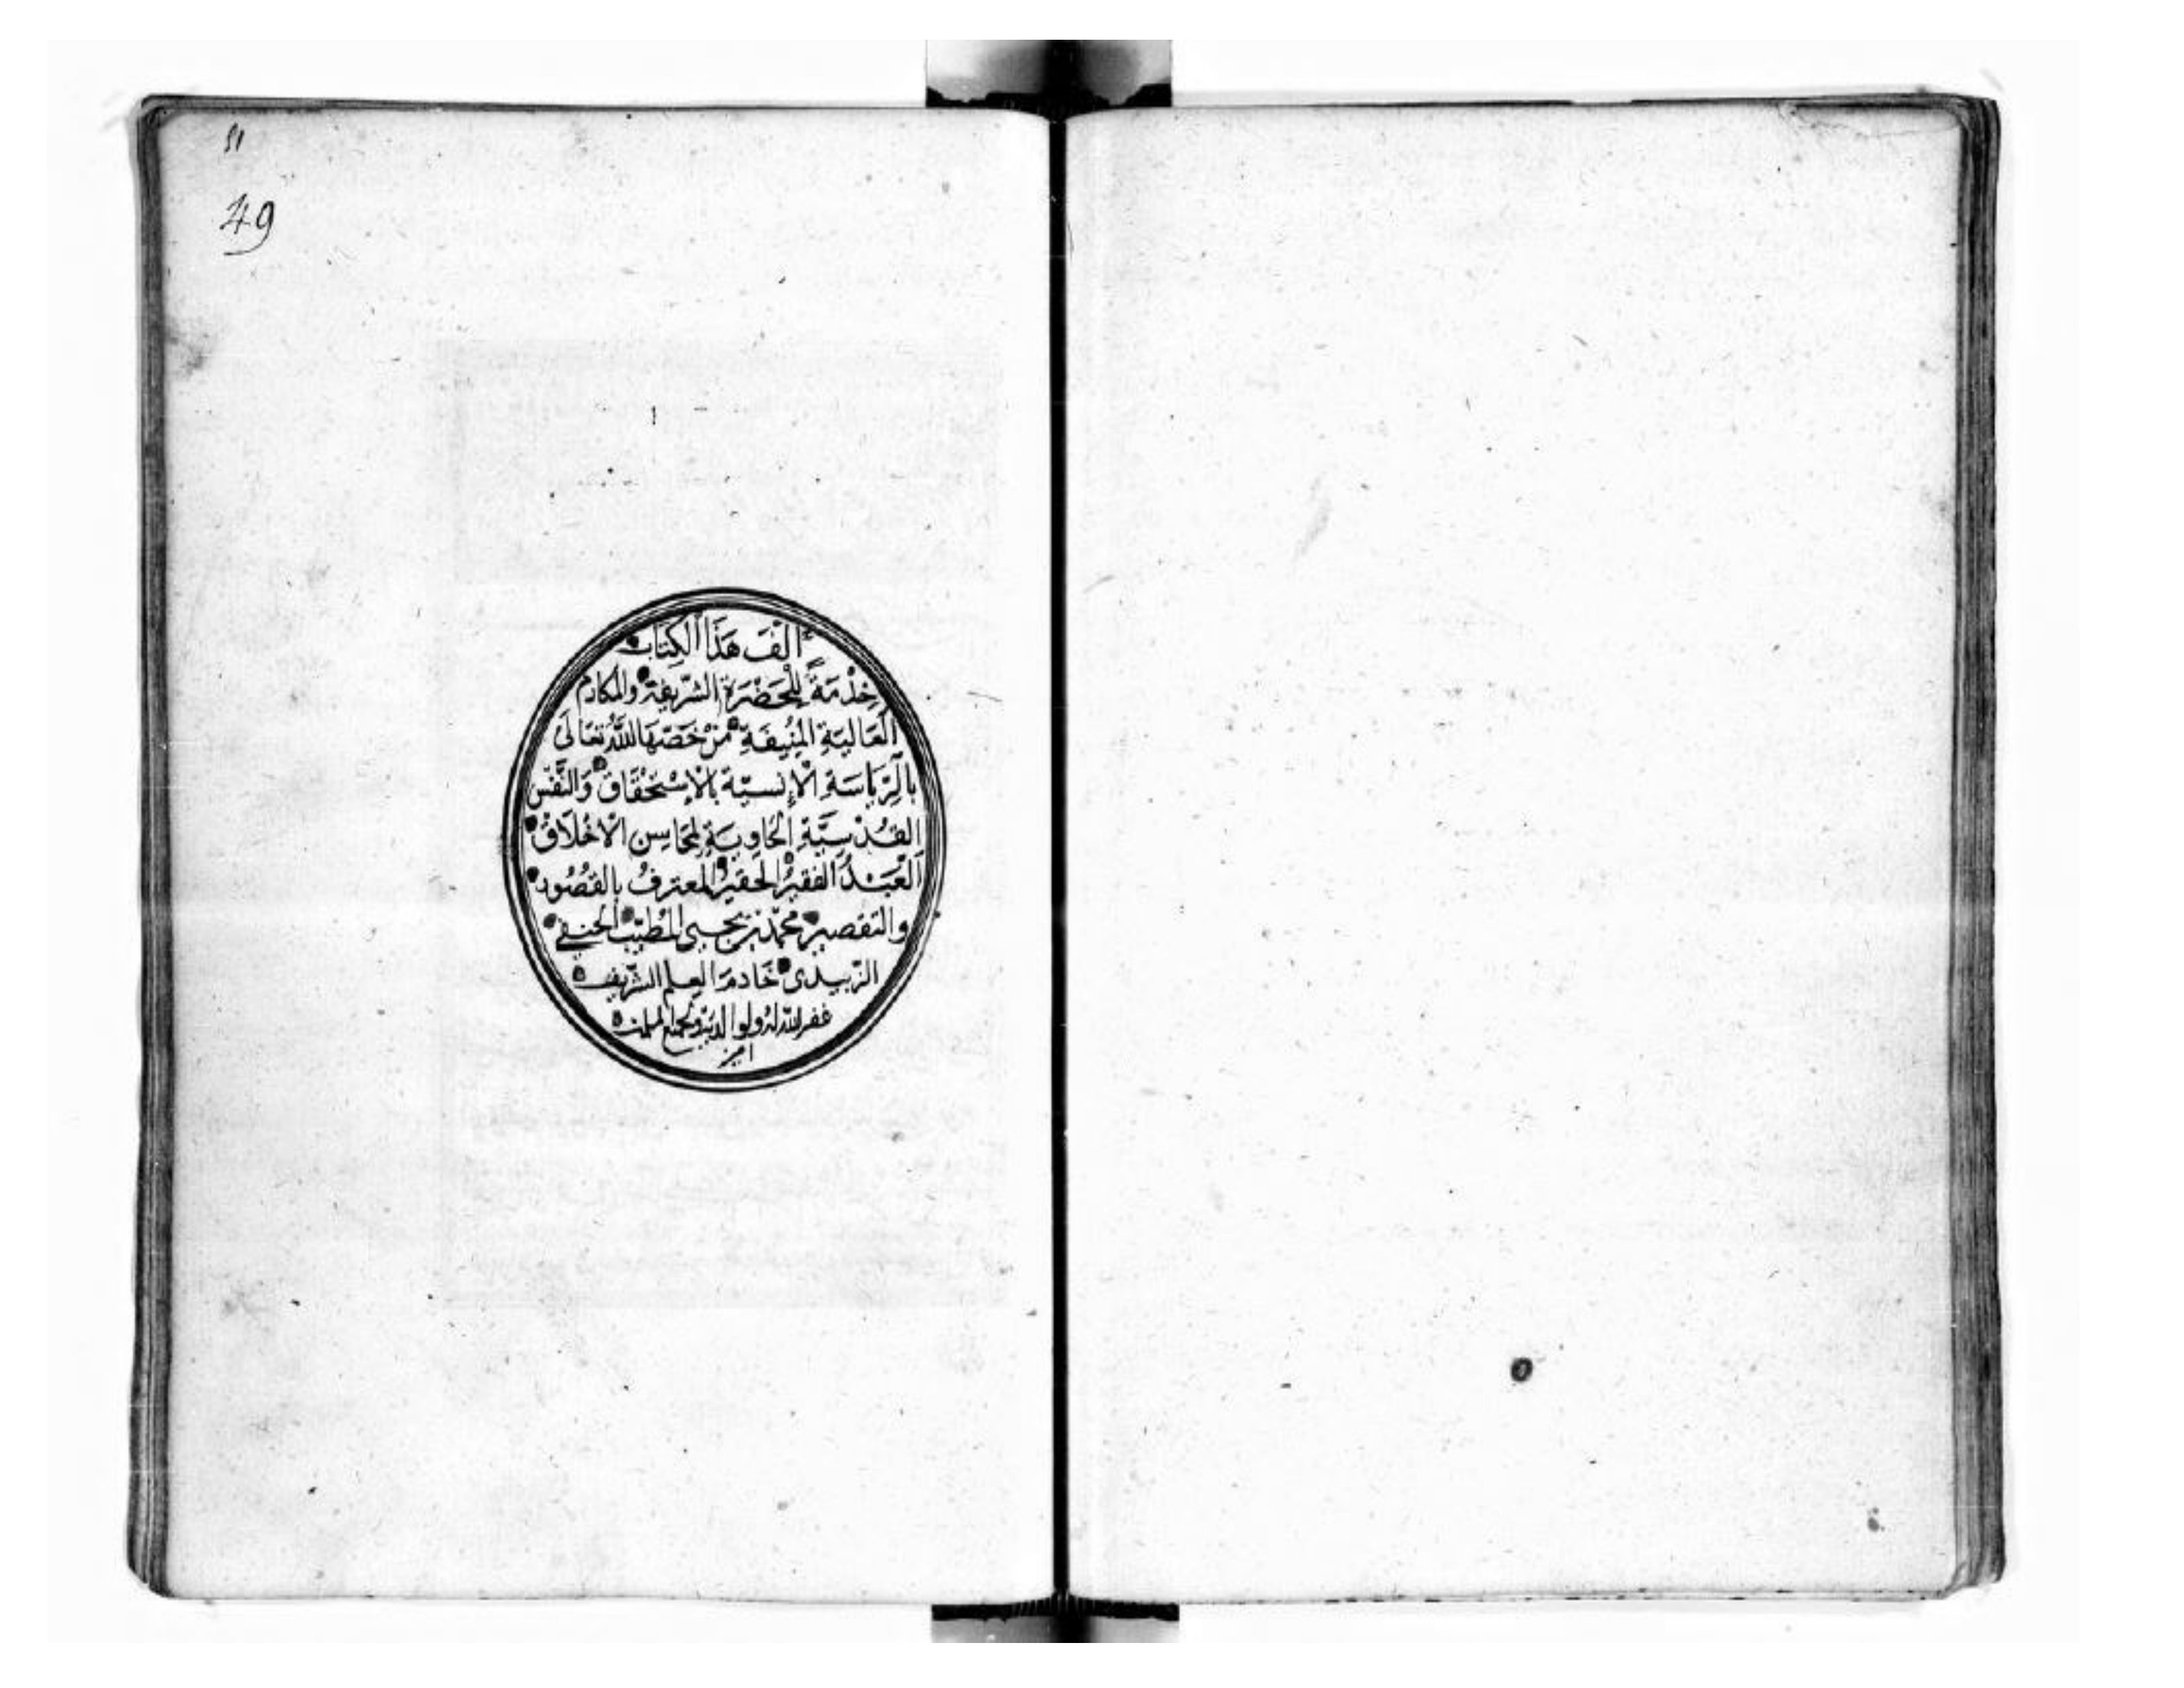 ٤١
49
أَلَّفَ هَذَا الْكِتَابَ
خِدْمَةً لِلْحَضْرَةِ الشَّرِيفَةِ وَالْمَكَارِمِ
الْعَالِيَةِ الْمُنِيفَةِ مَنْ خَصَّهَا اللَّهُ تَعَالَى
بِالرِّيَاسَةِ الْإِنْسِيَّةِ بِالْاِسْتِحْقَاقِ وَالنَّفْسِ
الْقُدْسِيَّةِ الْحَاوِيَةِ لِمَحَاسِنِ الْأَخْلَاقِ
الْعَبْدُ الْفَقِيرُ الْحَقِيرُ الْمُعْتَرِفُ بِالْقُصُورِ
والتقصير محمد بن يحيى المطيب الحنفي
الزبيدى خَادم العلم الشريف
غفر الله له ولوالديه ولجميع المسلمين
امين